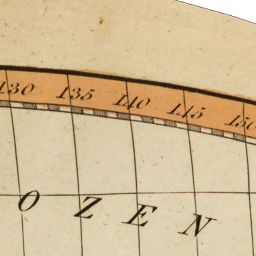 130 135 140 145 150
OZEN